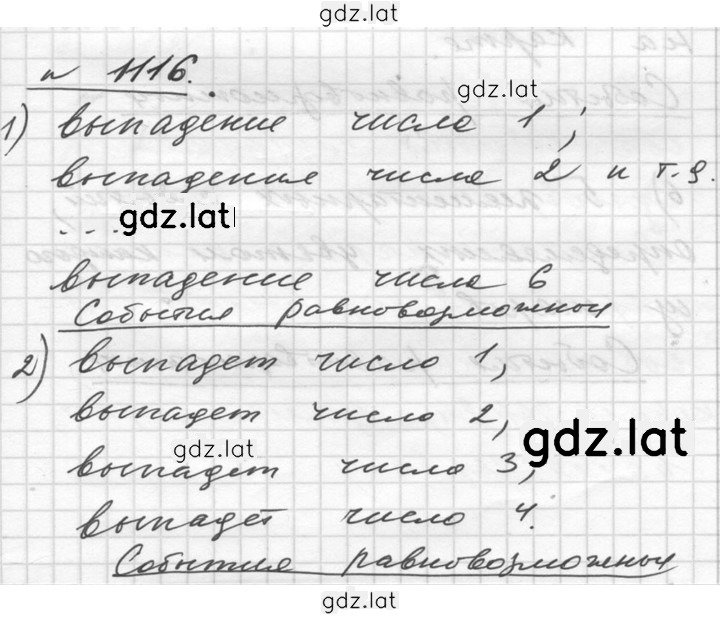 gdz.lat
№ 1116.
gdz.lat
1) выпадение числа 1;
выпадение числа 2 и т.д.
gdz.lat
. . . .
выпадение числа 6
События равновозможны
2) выпадет число 1,
выпадет число 2,
gdz.lat
gdz.lat
выпадет число 3,
выпадет число 4.
События равновозможны
gdz.lat